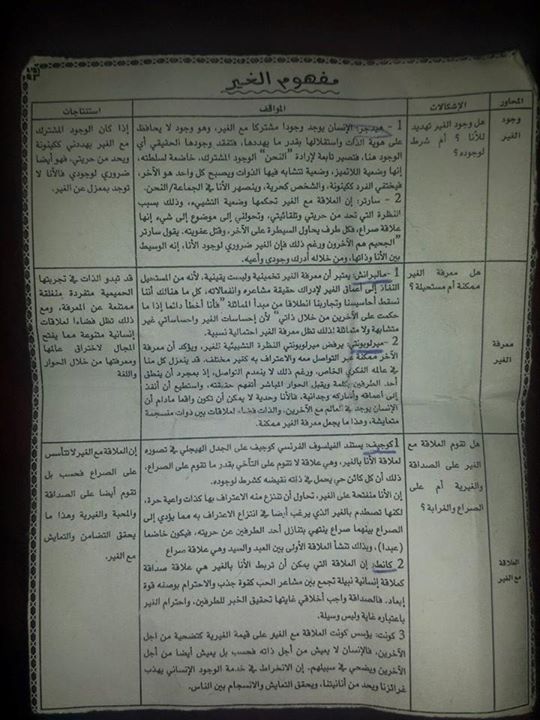 مفهوم الغير
المحاور
الإشكالات
المواقف
استنتاجات
وجود
الغير
هل وجود الغير تهديد
للأنا ؟ أم شرط
لوجوده؟
1 - هيدجر: الإنسان يوجد وجودا مشتركا مع الغير، وهو وجود لا يحافظ
على هوية الذات واستقلالها بقدر ما يهددها، فتفقد وجودها الحقيقي أي
الوجود هنا، فتصير تابعة لإرادة "النحن" الوجود المشترك، خاضعة لسلطته،
إنها وضعية اللاتميز، وضعية تتشابه فيها الذوات ويصبح كل واحد هو الآخر،
فيختفي الفرد ككينونة، والشخص كحرية، وينصهر الأنا في الجماعة/ النحن.
2 - سارتر: إن العلاقة مع الغير تحكمها وضعية التشييء، وذلك بسبب
النظرة التي تحد من حريتي وتلقائيتي، وتحولني إلى موضوع إلى شيء إنها
علاقة صراع، فكل طرف يحاول السيطرة على الآخر، وقتل عفويته. يقول سارتر
"الجحيم هم الآخرون ورغم ذلك فإن الغير ضروري لوجود الأنا، إنه الوسيط
بين الأنا وذاتها، ومن خلاله أدرك وجودي وأعيه.
إذا كان الوجود المشترك
مع الغير يهددني ككينونة
ويحد من حريتي، فهو أيضا
ضروري لوجودي فالأنا لا
توجد بمعزل عن الغير.
معرفة
الغير
هل معرفة الغير
ممكنة أم مستحيلة؟
1 -مالبرانش: يعتبر أن معرفة الغير تخمينية وليست يقينية، لأنه من المستحيل
النفاذ إلى أعماق الغير لإدراك حقيقة مشاعره وانفعالاته، كل ما هنالك أننا
نسقط أحاسيسنا وتجاربنا انطلاقا من مبدأ المماثلة "فأنا أخطأ دائما إذا ما
حكمت على الآخرين من خلال ذاتي" لأن إحساسات الغير واحساساتي غير
متشابهة ولا متماثلة لذلك تظل معرفة الغير احتمالية نسبية.
2 -ميرلوبونتي: يرفض ميرلوبونتي النظرة التشييئية للغير، ويؤكد أن معرفة
الآخر ممكنة عبر التواصل معه والاعتراف به كغير مختلف. قد ينعزل كل منا
في عالمه الفكري الخاص، ورغم ذلك لا ينعدم التواصل، إذ بمجرد أن ينطق
أحد الطرفين بكلمة ويقبل الحوار المباشر أتفهم حقيقته، وأستطيع أن أنفذ
إلى أعماقه وأشاركه وجدانيا. فالأنا وحدية لا يمكن أن تكون واقعا مادام أن
الإنسان يوجد في العالم مع الآخرين، والذات فضاء لعلاقات بين ذوات منسجمة
متعايشة، وهذا ما يجعل معرفة الغير ممكنة.
قد تبدو الذات في تجربتها
الحميمية متفردة منغلقة
ممتنعة عن المعرفة، ومع
ذلك تظل فضاءا لعلاقات
إنسانية متنوعة مما يفتح
المجال لاختراق عالمها
ومعرفتها من خلال الحوار
واللغة
العلاقة
مع الغير
هل تقوم العلاقة مع
الغير على الصداقة
والغيرية أم على
الصراع والغرابة؟
1كوجيف: يستند الفيلسوف الفرنسي كوجيف على الجدل الهيجلي في تصوره
لعلاقة الأنا بالغير، وهي علاقة لا تقوم على التآخي بقدر ما تقوم على الصراع،
ذلك أن كل كائن حي يحمل في ذاته نقيضه كشرط لوجوده.
إن الأنا منفتحة على الغير، تحاول أن تنتزع منه الاعتراف بها كذات واعية حرة،
لكنها تصطدم بالغير الذي يرغب أيضا في انتزاع الاعتراف به مما يؤدي إلى
الصراع بينهما صراع ينتهي بتنازل أحد الطرفين عن حريته، فيكون خاضعا
(عبدا)، وبذلك تنشأ العلاقة الأولى بين العبد والسيد وهي علاقة صراع
2 كانط: إن العلاقة التي يمكن أن تربط الأنا بالغير هي علاقة صداقة
كعلاقة إنسانية نبيلة تجمع بين مشاعر الحب كقوة جذب والاحترام بوصفه قوة
إبعاد. فالصداقة واجب أخلاقي غايتها تحقيق الخير للطرفين، واحترام الغير
باعتباره غاية وليس وسيلة.
3 كونت: يؤسس كونت العلاقة مع الغير على قيمة الغيرية كتضحية من أجل
الآخرين، فالإنسان لا يعيش من أجل ذاته فحسب بل يعيش أيضا من أجل
الآخرين ويضحي في سبيلهم. إن الانخراط في خدمة الوجود الإنساني يهذب
غرائزنا ويحد من أنانيتنا، ويحقق التعايش والانسجام بين الناس.
إن العلاقة مع الغير لا تتأسس
على الصراع فحسب بل
تقوم أيضا على الصداقة
والمحبة والغيرية وهذا ما
يحقق التضامن والتعايش
مع الغير.